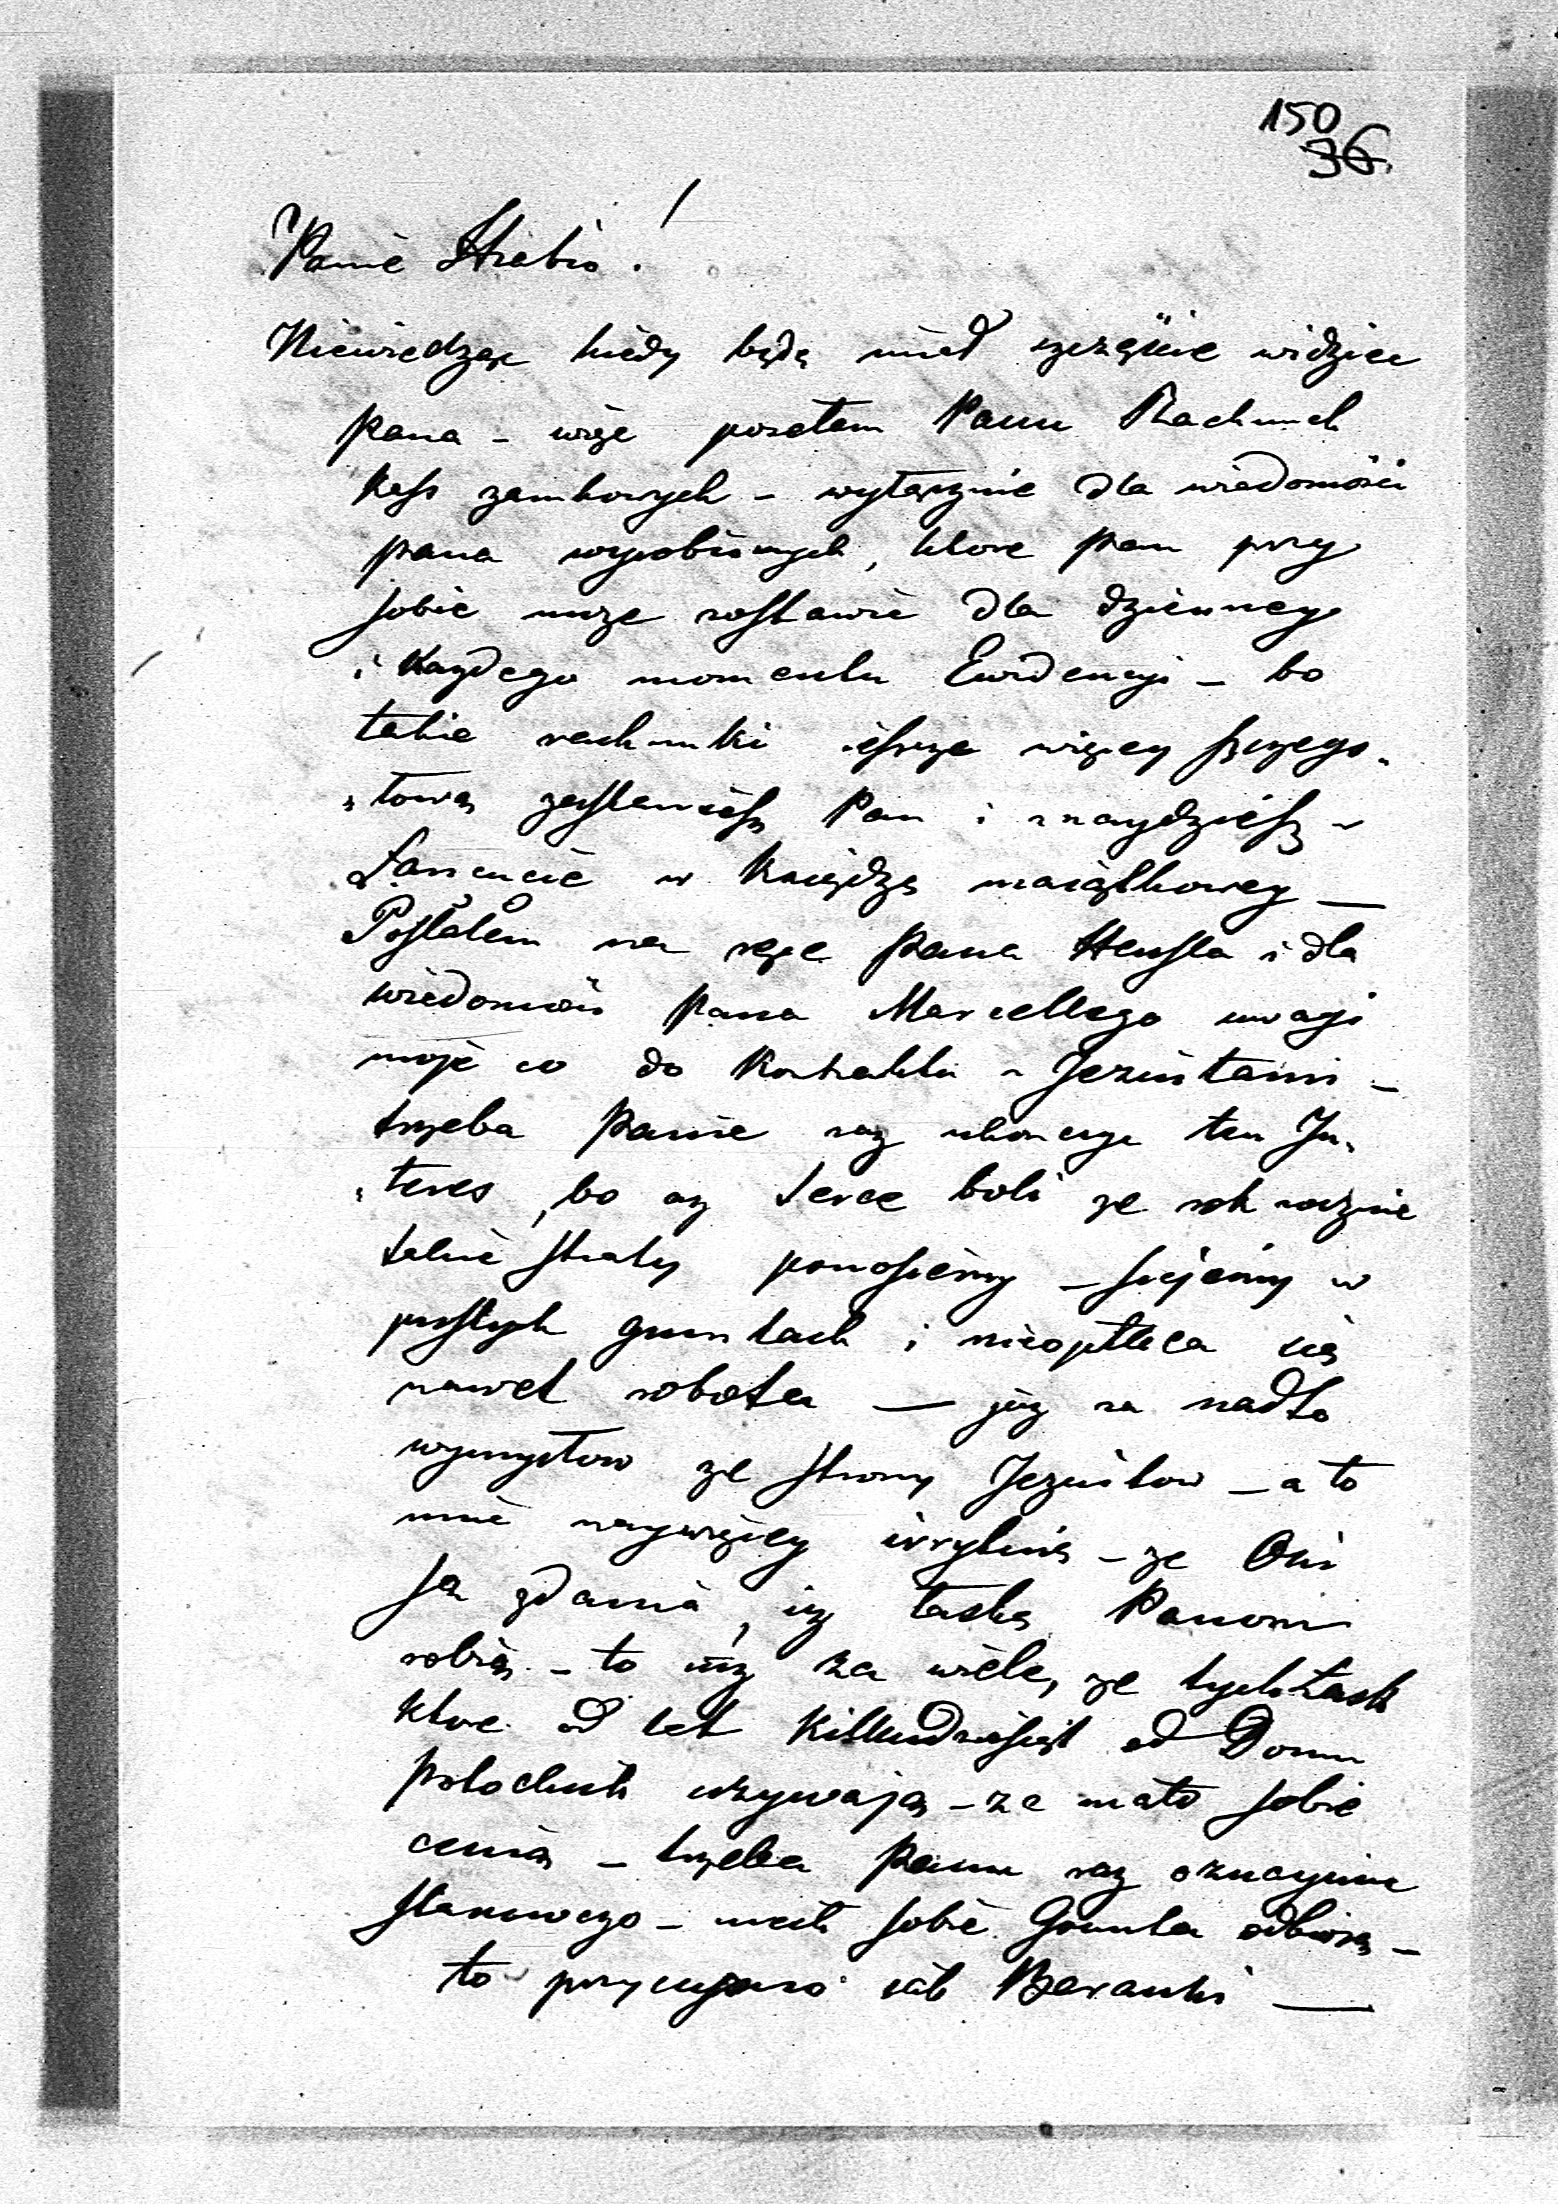 150
36.
Panie Hrabio!
Niewiedząc kiedy będę miał szczęście widziec
pana - więc posełem Panu Rachunek
Kass zamkowych - wyłącznie dla wiadomości
pana wyrobionych, ktore pan przy
sobie moze zostawic dla dzienney
i Kazdego momentu Ewidencyi - bo
takie rachunki ieszcze więcey szczego„
„łową zastawiesz Pan i znaydziesz w
Łancucie w Księdze maiątkowey —
Posłałem na ręce pana Hensla i dla
wiadomości pana Marcellego uwagi
moje co do Kontraktu z Jezuitami -
trzeba Panie raz ukonczyc ten In„
„teres, bo az serce boli ze rok rocznie
takie straty ponosiemy - siejemy w
pustych gruntach i nieopłaca się
nawet robota — juz za nadto
wymysłow ze strony Jezuitow - a to
mnie naywięcey irrytuie - ze Oni
są zdania, iz łaskę Panom
robią - to iuz za wiele, ze tych łask
ktore od lat Kilkudziesiąt od Domu
potockich uzywają - za mało sobie
cenią - trzeba Panu raz oznaymic
stanowczo - niech sobie Grunta odbiorą -
to przyczyni się Baranki —